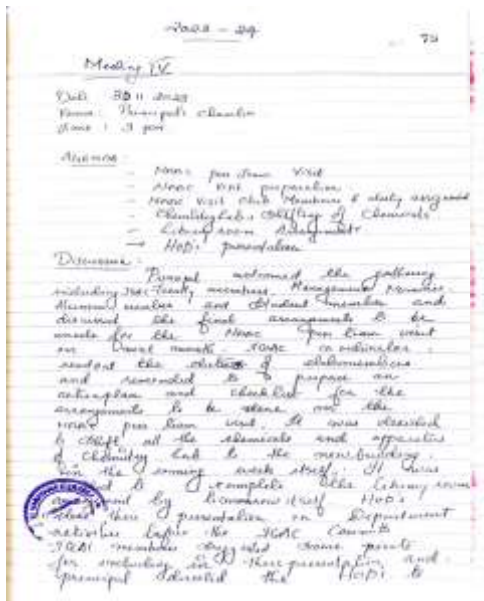 2023 - 24
73
Meeting IV
Date : 30 11 2023
Venue : Principal's Chamber
Time : 3 pm
Agenda :
- NAAC peer team Visit
- NAAC Visit preparation
- NAAC Visit Members & duty assigned
- Chemistry Lab : Shifting of Chemicals
- Library room Arrangements
→ HoD's presentation
Discussion :
Principal welcomed the gathering
including IQAC Faculty members, Management Member,
Alumni member and Student member and
discussed the final arrangements to be
made for the NAAC peer team visit
on month. IQAC co-ordinator
readout the of
and to prepare an
action plan and check list for the
arrangements to be done for the
NAAC peer team visit. It was decided
to shift all the chemicals and apparatus
of Chemistry lab to the new building
in the coming week itself. It was
to complete the library room
by tomorrow itself HoD's
their presentation on Department
activities before the IQAC Committee
IQAC members suggested some points
for including in their presentation and
principal advised the HoD's to